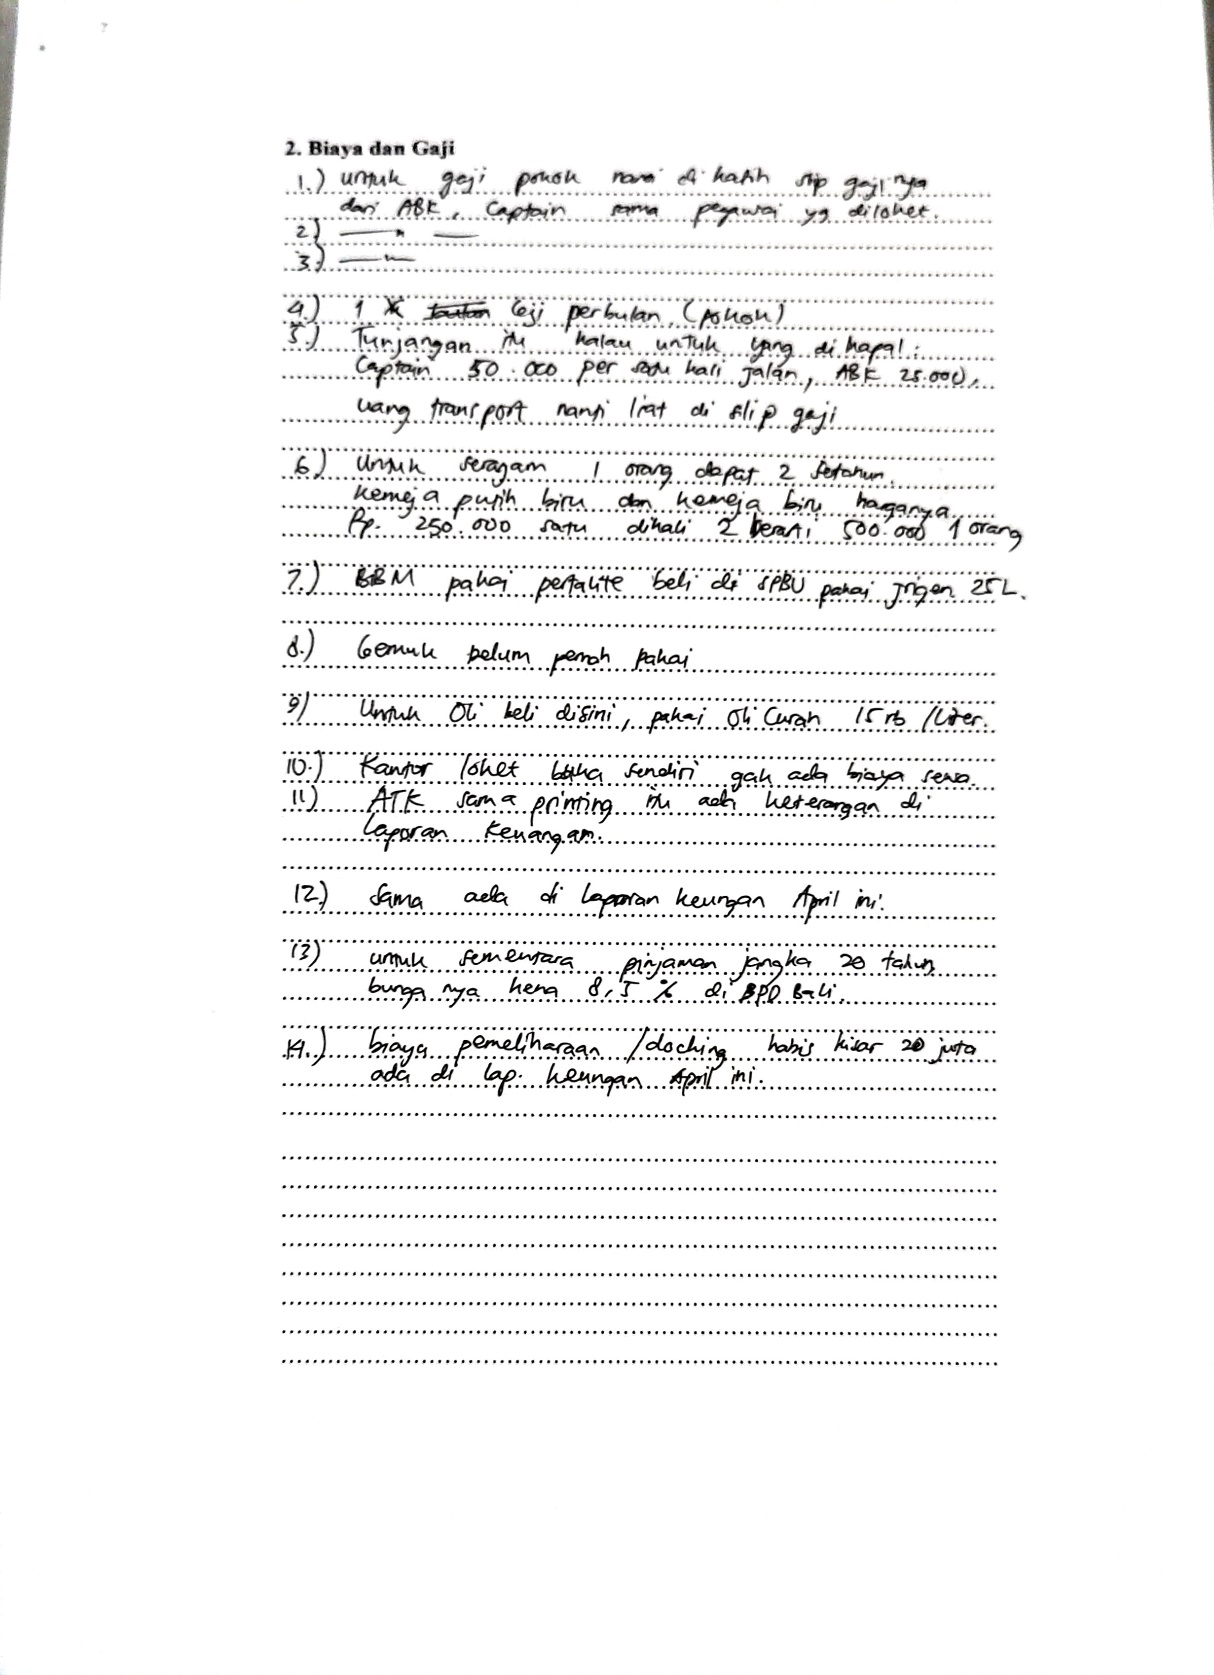 2. Biaya dan Gaji
1.) untuk gaji pokok nanti di kasih slip gaji nya
dari ABK, Captain sama pegawai yg diloket.
2) —"— —
3.) —"—
4.) 1 x Gaji perbulan (pokok)
5.) Tunjangan itu kalau untuk yang di kapal :
Captain 50.000 per satu kali jalan, ABK 25.000,
uang transport nanti liat di slip gaji
6.) Untuk seragam 1 orang dapat 2 setahun.
kemeja putih biru dan kemeja biru haganya
Rp. 250.000 satu dikali 2 berarti 500.000 1 orang
7.) BBM pakai pertalite beli di SPBU pakai jrigen 25L.
8.) Gemuk belum pernah pakai
9) Untuk Oli beli disini, pakai Oli Curah 15 rb /Liter.
10.) Kantor loket buka sendiri gak ada biaya sewa.
11) ATK sama printing itu ada keterangan di
Laporan Keuangan.
12.) Sama ada di Laporan keungan April ini.
13) untuk sementara pinjaman jangka 20 tahun
bunga nya kena 8,5 % di BPD Bali.
14.) biaya pemeliharaan /docking habis kisar 20 juta
ada di lap. keungan April ini.